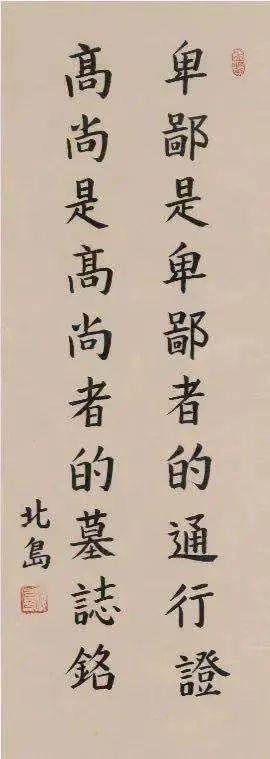 卑鄙是卑鄙者的通行證
高尚是高尚者的墓誌銘
北島